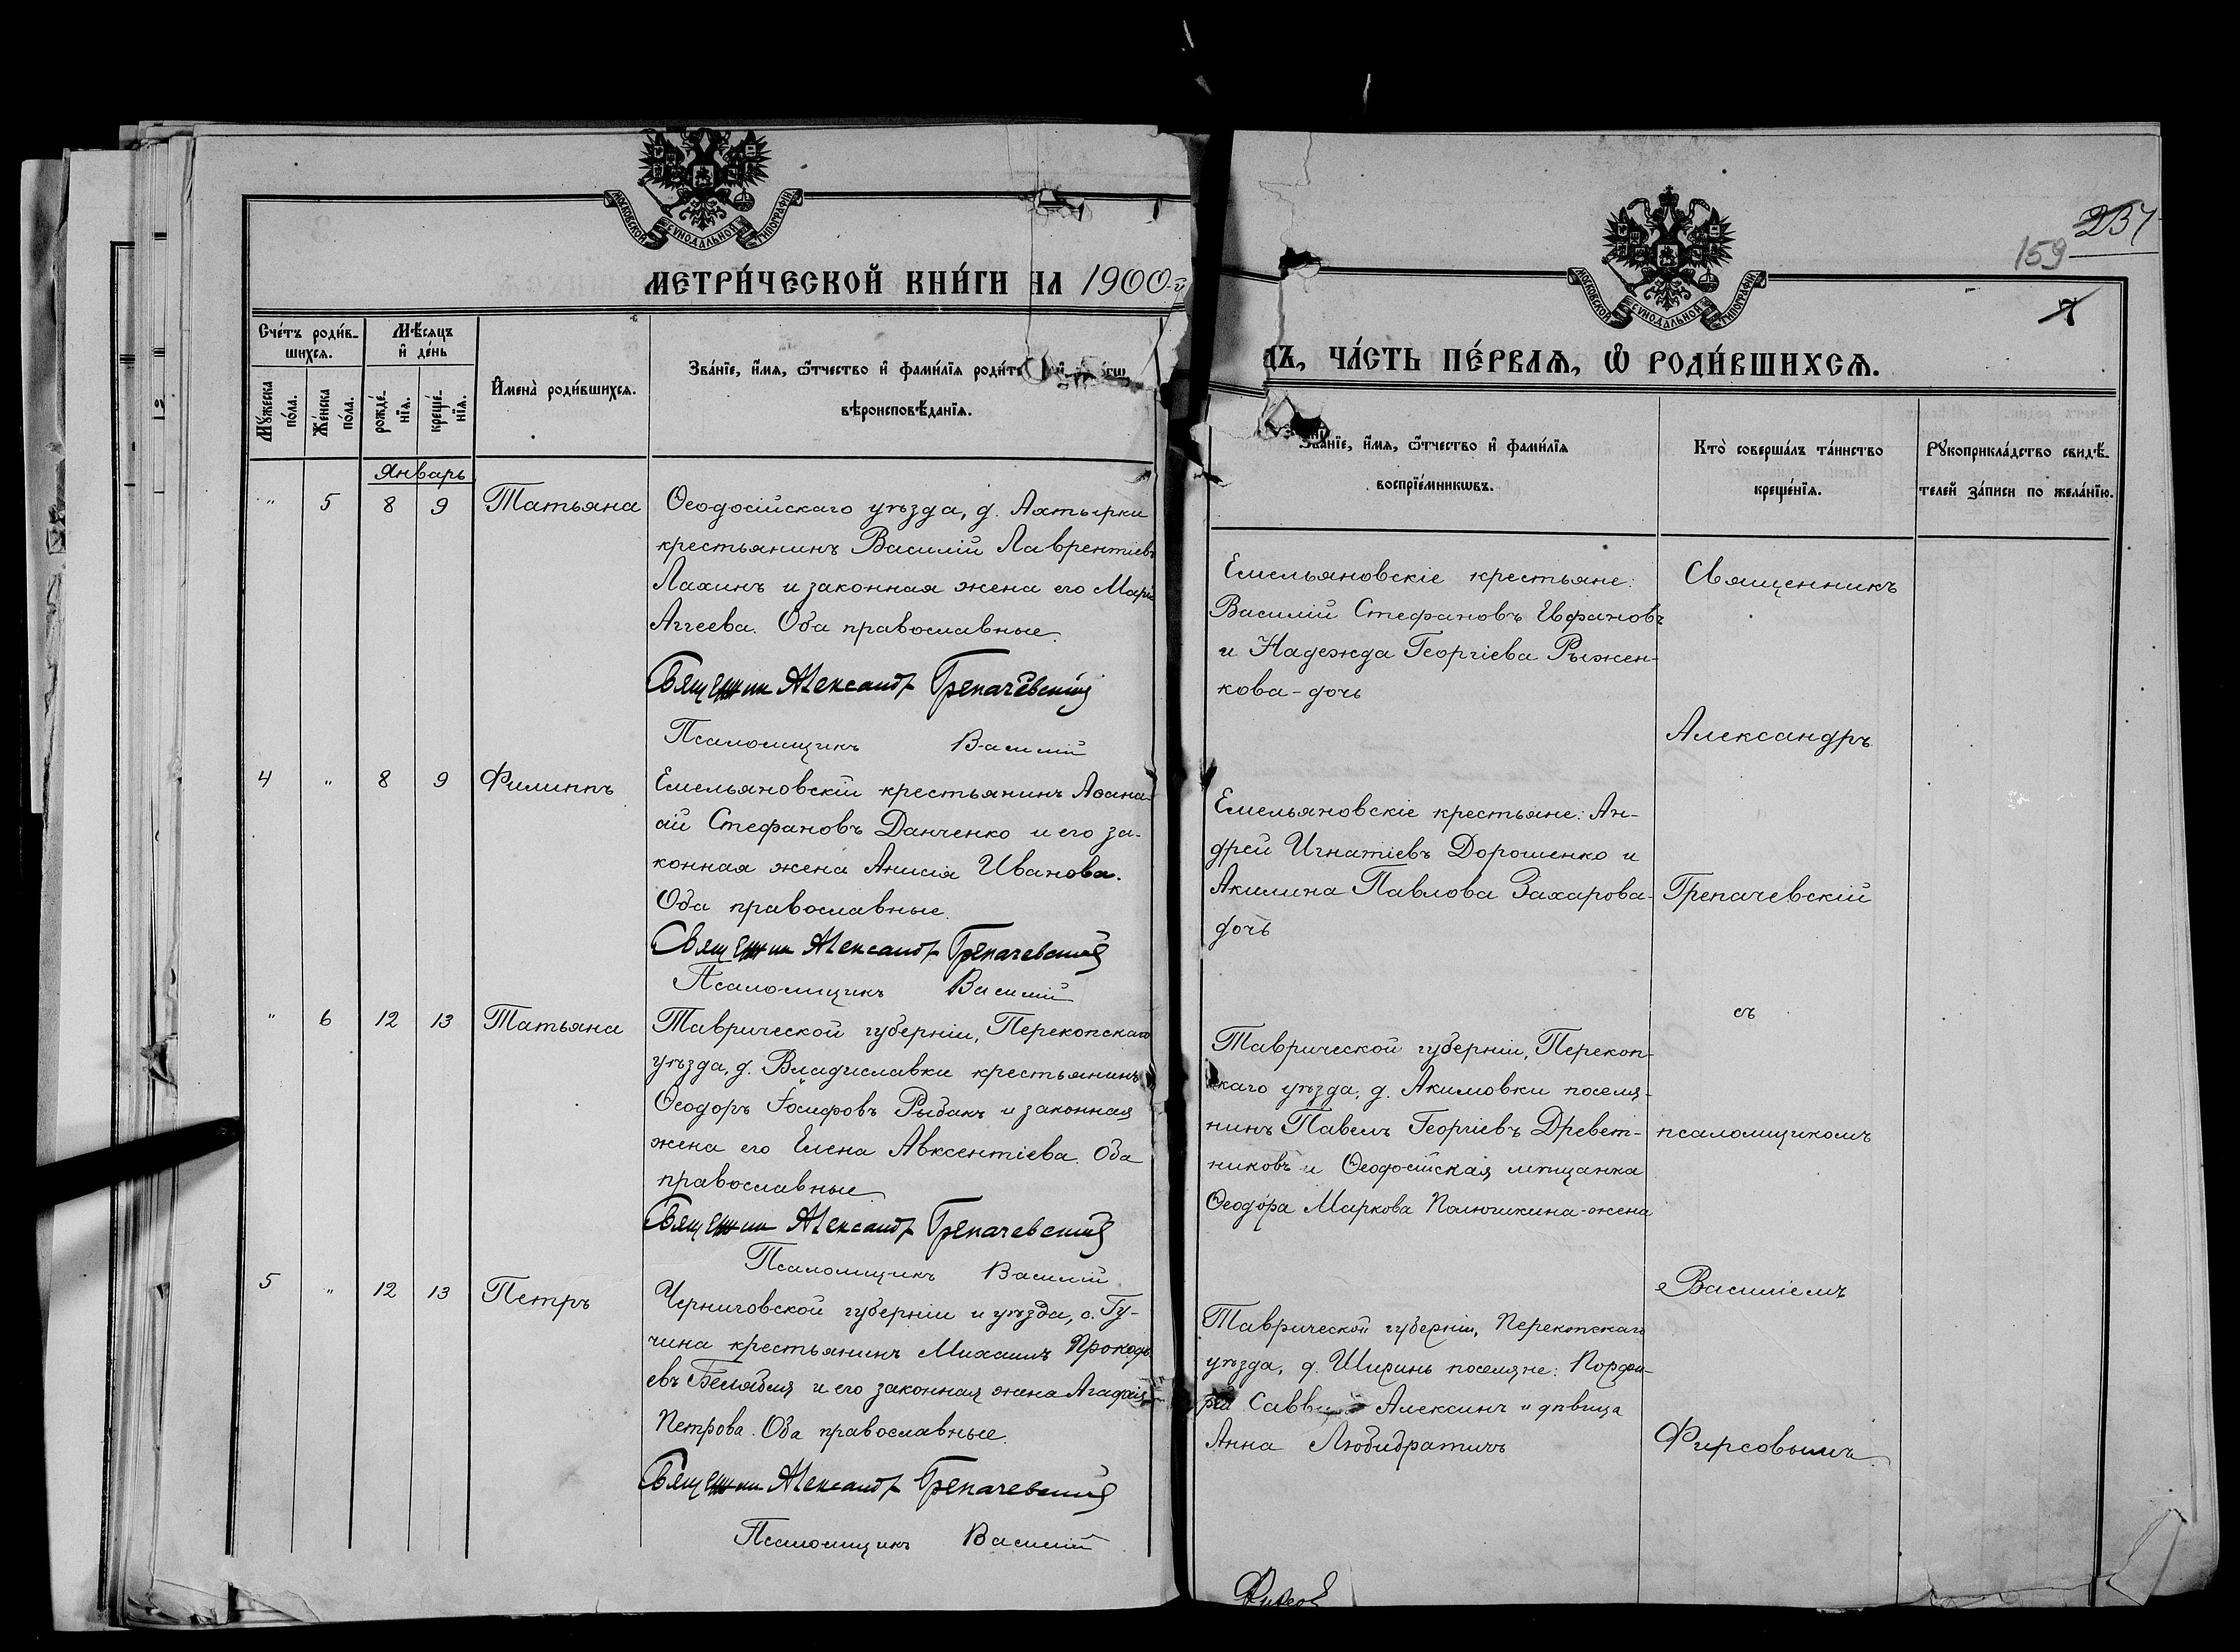 МОСКОВСКОЙ СѴНОДАЛЬНОЙ ТИПОГРАФІИ
МЕТРИ́ЧЕСКОЙ КНИ́ГИ НА 1900-й
Сче́тъ роди́в-
шихсѧ.
Мѣ́сѧцъ
и҆ де́нь
И҆мена̀ роди́вшихсѧ.
Зва́нїе, и҆́мѧ, ѻ҆́тчество и҆ фами́лїѧ
вѣроисповѣ́данїѧ.
Мꙋ́жеска
по́ла.
Же́нска
по́ла.
рожде́-
нїѧ.
креще́-
нїѧ.
Январь
" 5 8 9 Татьяна
Ѳеодосійскаго уѣзда, д. Ахтырки
крестьянинъ Василій Лаврентіевъ
Лахинъ и законная жена его Марія
Аггеева. Оба православные.
Священник Александр Грепачевскій
Псаломщикъ Василій
4 " 8 9 Филиппъ
Емельяновскій крестьянинъ Аѳана-
сій Стефановъ Данченко и его за-
конная жена Анисія Иванова.
Оба православные.
Священник Александр Грепачевскій
Псаломщикъ Василій
" 6 12 13 Татьяна
Таврической губерніи, Перекопскаго
уѣзда, д. Владиславки крестьянинъ
Ѳеодоръ Іосифовъ Рыбакъ и законная
жена его Елена Авксентіева. Оба
православные.
Священник Александр Грепачевскій
Псаломщикъ Василій
5 " 12 13 Петръ
Черниговской губерніи и уѣзда, с. Гу-
чина крестьянинъ Михаилъ Прокофь
евъ и его законная жена Агафія
Петрова. Оба православные.
Священник Александр Грепачевскій
Псаломщикъ Василій
159 237
7
МОСКОВСКОЙ СѴНОДАЛЬНОЙ ТИПОГРАФІИ
ДЪ, ЧА́СТЬ ПЕ́РВАѦ, Ѽ РОДИ́ВШИХСѦ.
Зва́нїе, и҆́мѧ, ѻ҆́тчество и҆ фами́лїѧ
воспрїе́мникѡвъ.
Кто̀ соверша́лъ та́инство
креще́нїѧ.
Рꙋкоприкла́дство свидѣ́-
телей за́писи по жела́нїю.
Емельяновскіе крестьяне:
Василій Стефановъ Евфановъ
и Надежда Георгіева Рыжен-
кова-дочь
Емельяновскіе крестьяне: Ан-
дрей Игнатіевъ Дорошенко и
Акилина Павлова Захарова-
дочь
Таврической губерніи, Перекоп-
скаго уѣзда, д. Акимовки поселя-
нинъ Павелъ Георгіевъ Древет-
никовъ и Ѳеодосійская мѣщанка
Ѳеодора Маркова Полюшкина-жена
Таврической губерніи, Перекопскаго
уѣзда, д. Ширинь поселяне: Порфи-
рій Алексинъ и дѣвица
Анна Любибратичъ
Священникъ
Александръ
Грепачевскій
съ
псаломщикомъ
Василіемъ
Фирсовымъ.
Фирсов